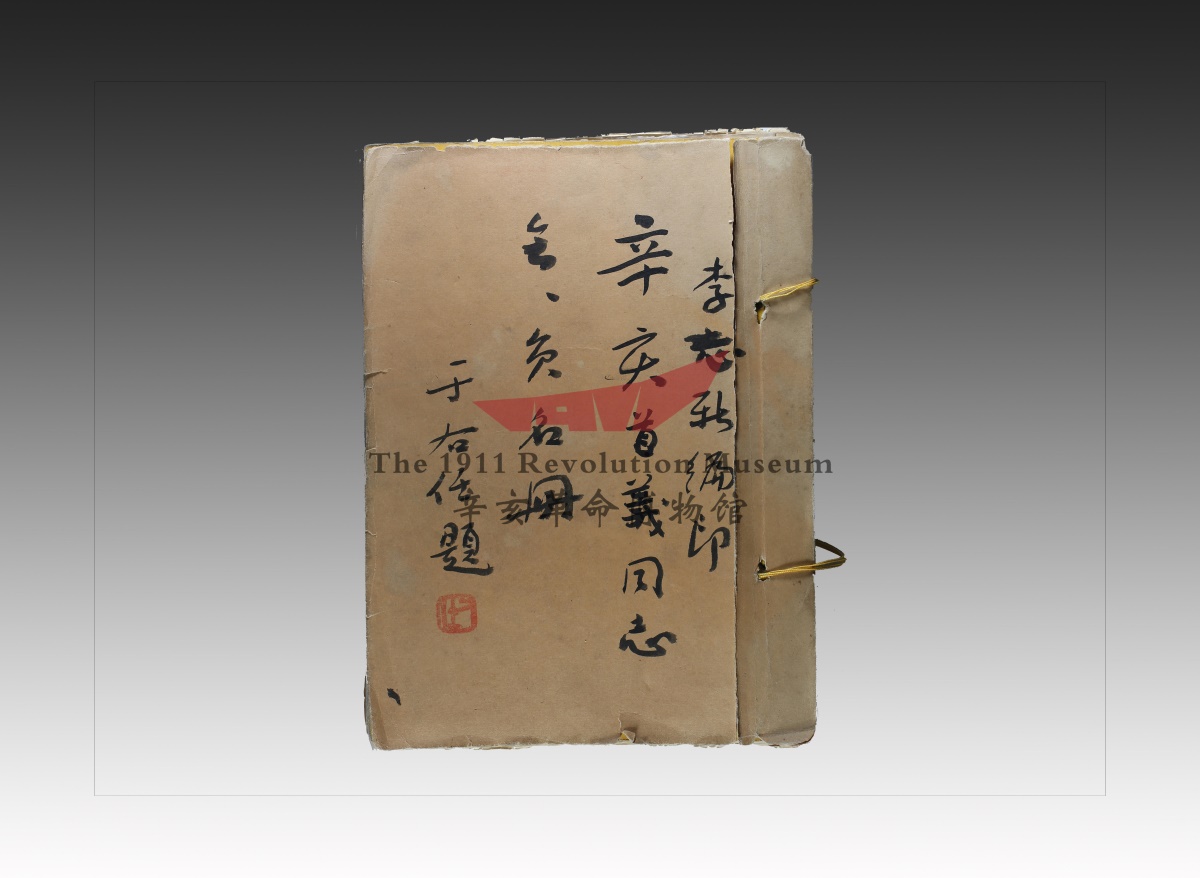 李志新編印
辛亥首義同志
會、員名冊
于右任題
The 1911 Revolution Museum
辛亥革命博物馆